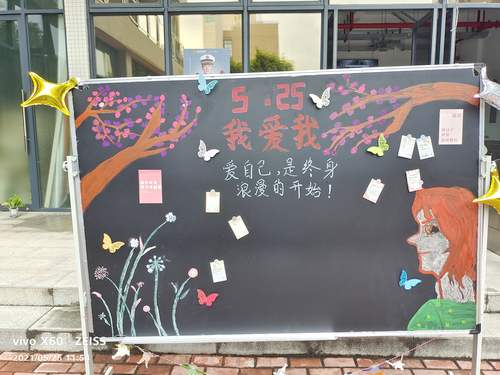 5·25
我爱我
爱自己,是终身
浪漫的开始!
vivo X60 | ZEISS
2021/05/25 11:54